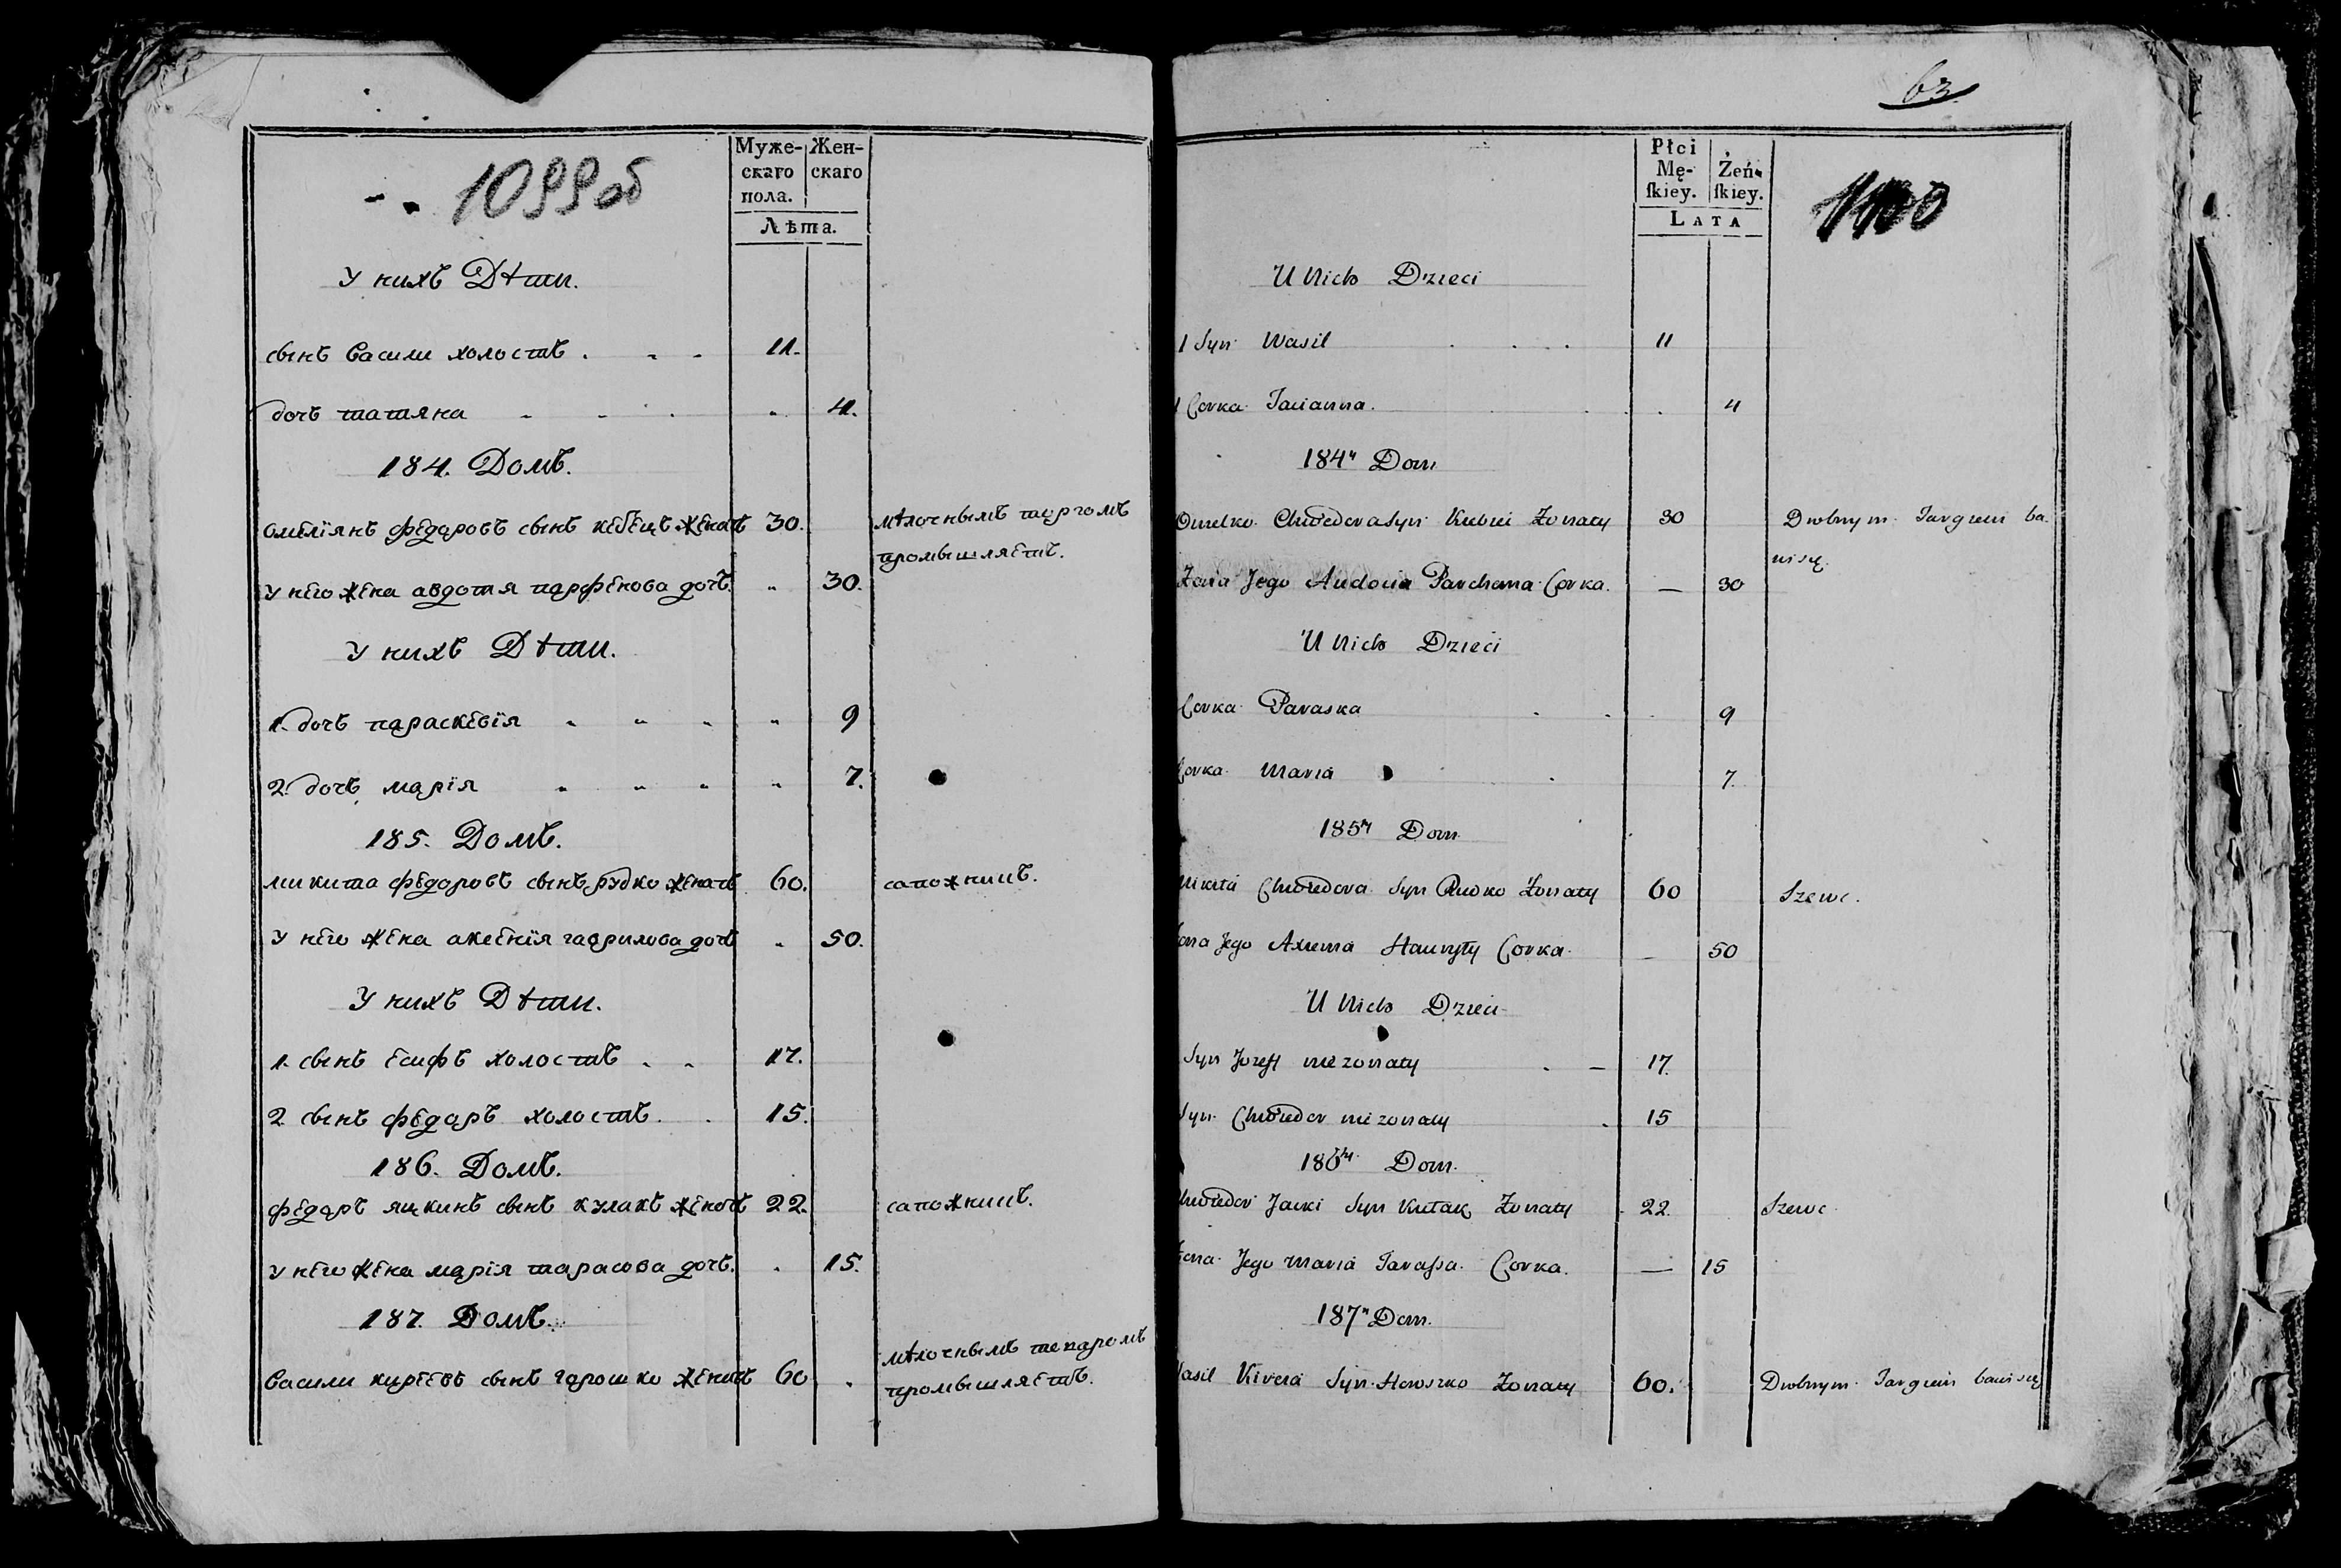 1099об
Муже-
скаго
пола.
Жен-
скаго
Лѣта.
У нихъ Дѣти.
сынъ васили холостъ . . . 11.
дочь татяна . . . „ 4.
184. Домъ.
омелїянъ федоровъ сынъ кебецъ женатъ 30. мѣлочнымъ торгомъ
промышляетъ.
у него жена авдотя парфенова дочъ. „ 30.
У нихъ Дѣти.
1. дочъ параскевїя „ „ „ „ 9
2. дочъ марїя „ „ „ „ 7.
185. Домъ.
микита федоровъ сынъ рудко женатъ 60. сапожницъ.
У него жена аксенїя гаврилова дочъ „ 50.
У нихъ Дѣти.
1. сынъ есифъ холостъ . . 17.
2 сынъ федоръ холостъ . . 15.
186. Домъ.
федоръ яцкинъ сынъ кулакъ женатъ 22. сапожницъ.
у него жена марїя тарасова дочъ. . 15.
187. Домъ.
васили киреевъ сынъ гарошко женатъ 60 . мѣлочнымъ
промышляетъ.
63.
Płci
Mę-
ſkiey.
Żeń-
ſkiey.
LATA
1100
U Nich Dzieci
1 Syn Wasil . . . . 11
1 Corka Tacianna . . . 4
184y Dom
Omelko Chwedora Syn Kubiei Żonaty 30 Drobnym Targiem ba
wi się.
Żona Jego Audocia Parchoma Corka. — 30
U Nich Dzieci
Corka Paraska . . . 9
Corka Maria . 7.
185y Dom
Mikita Chwedora Syn Rudko Żonaty 60 Szewc.
Żona Jego Axienia Hauryły Corka — 50
U Nich Dzieci
Syn Jozeff nie zonaty . — 17.
Syn Chwedor nie zonaty . 15
186y Dom.
Chwedor Jacki Syn Kułak Żonaty 22. Szewc.
Żona Jego Maria Tarassa Corka. — 15
187y Dom.
Wasil Kireia Syn Horoszko Żonaty 60. Drobnym Targiem bawi się